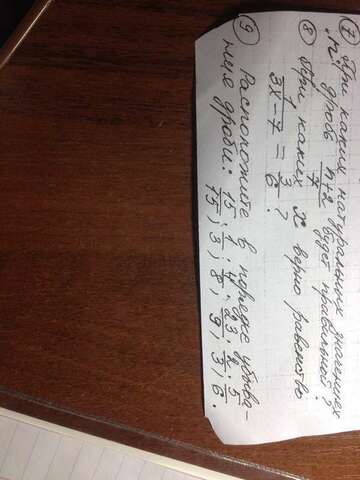 ⑦ При каких натуральных значениях
n дробь (n+2)/7 будет правильной?
⑧ При каких X верно равенство
1/(3X-7) = 3/6 ?
⑨ Расположите в порядке убыва-
ния дроби: 15/15; 1/3; 4/8; 2/9; 2/3; 5/6.